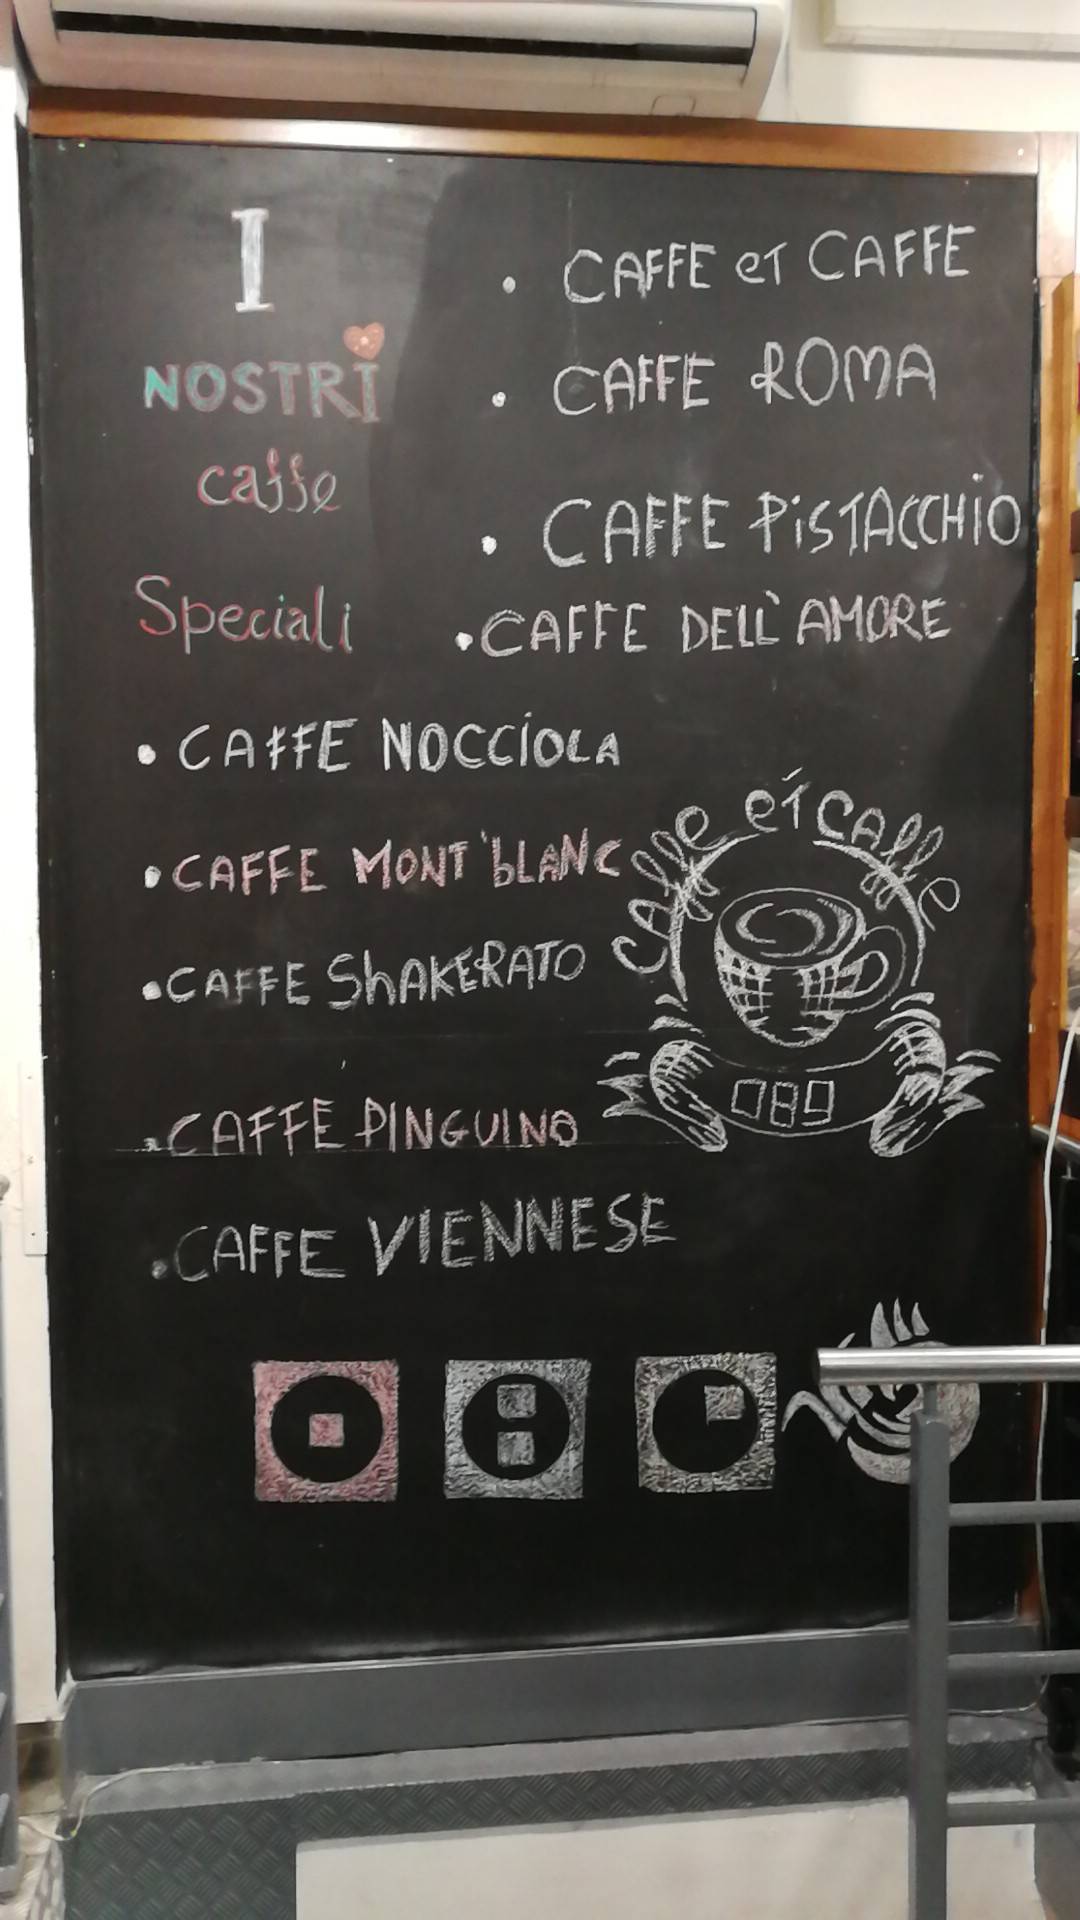 I
NOSTRI
caffe
Speciali
• CAFFE et CAFFE
• CAFFE ROMA
• CAFFE PiSTACCHiO
• CAFFE DELL' AMORE
• CAFFE NOCCiOLA
• CAFFE MONT'bLANC
• CAFFE ShAKERATO
• CAFFE PINGUINO
• CAFFE VIENNESE
CAffe et CAffe
089